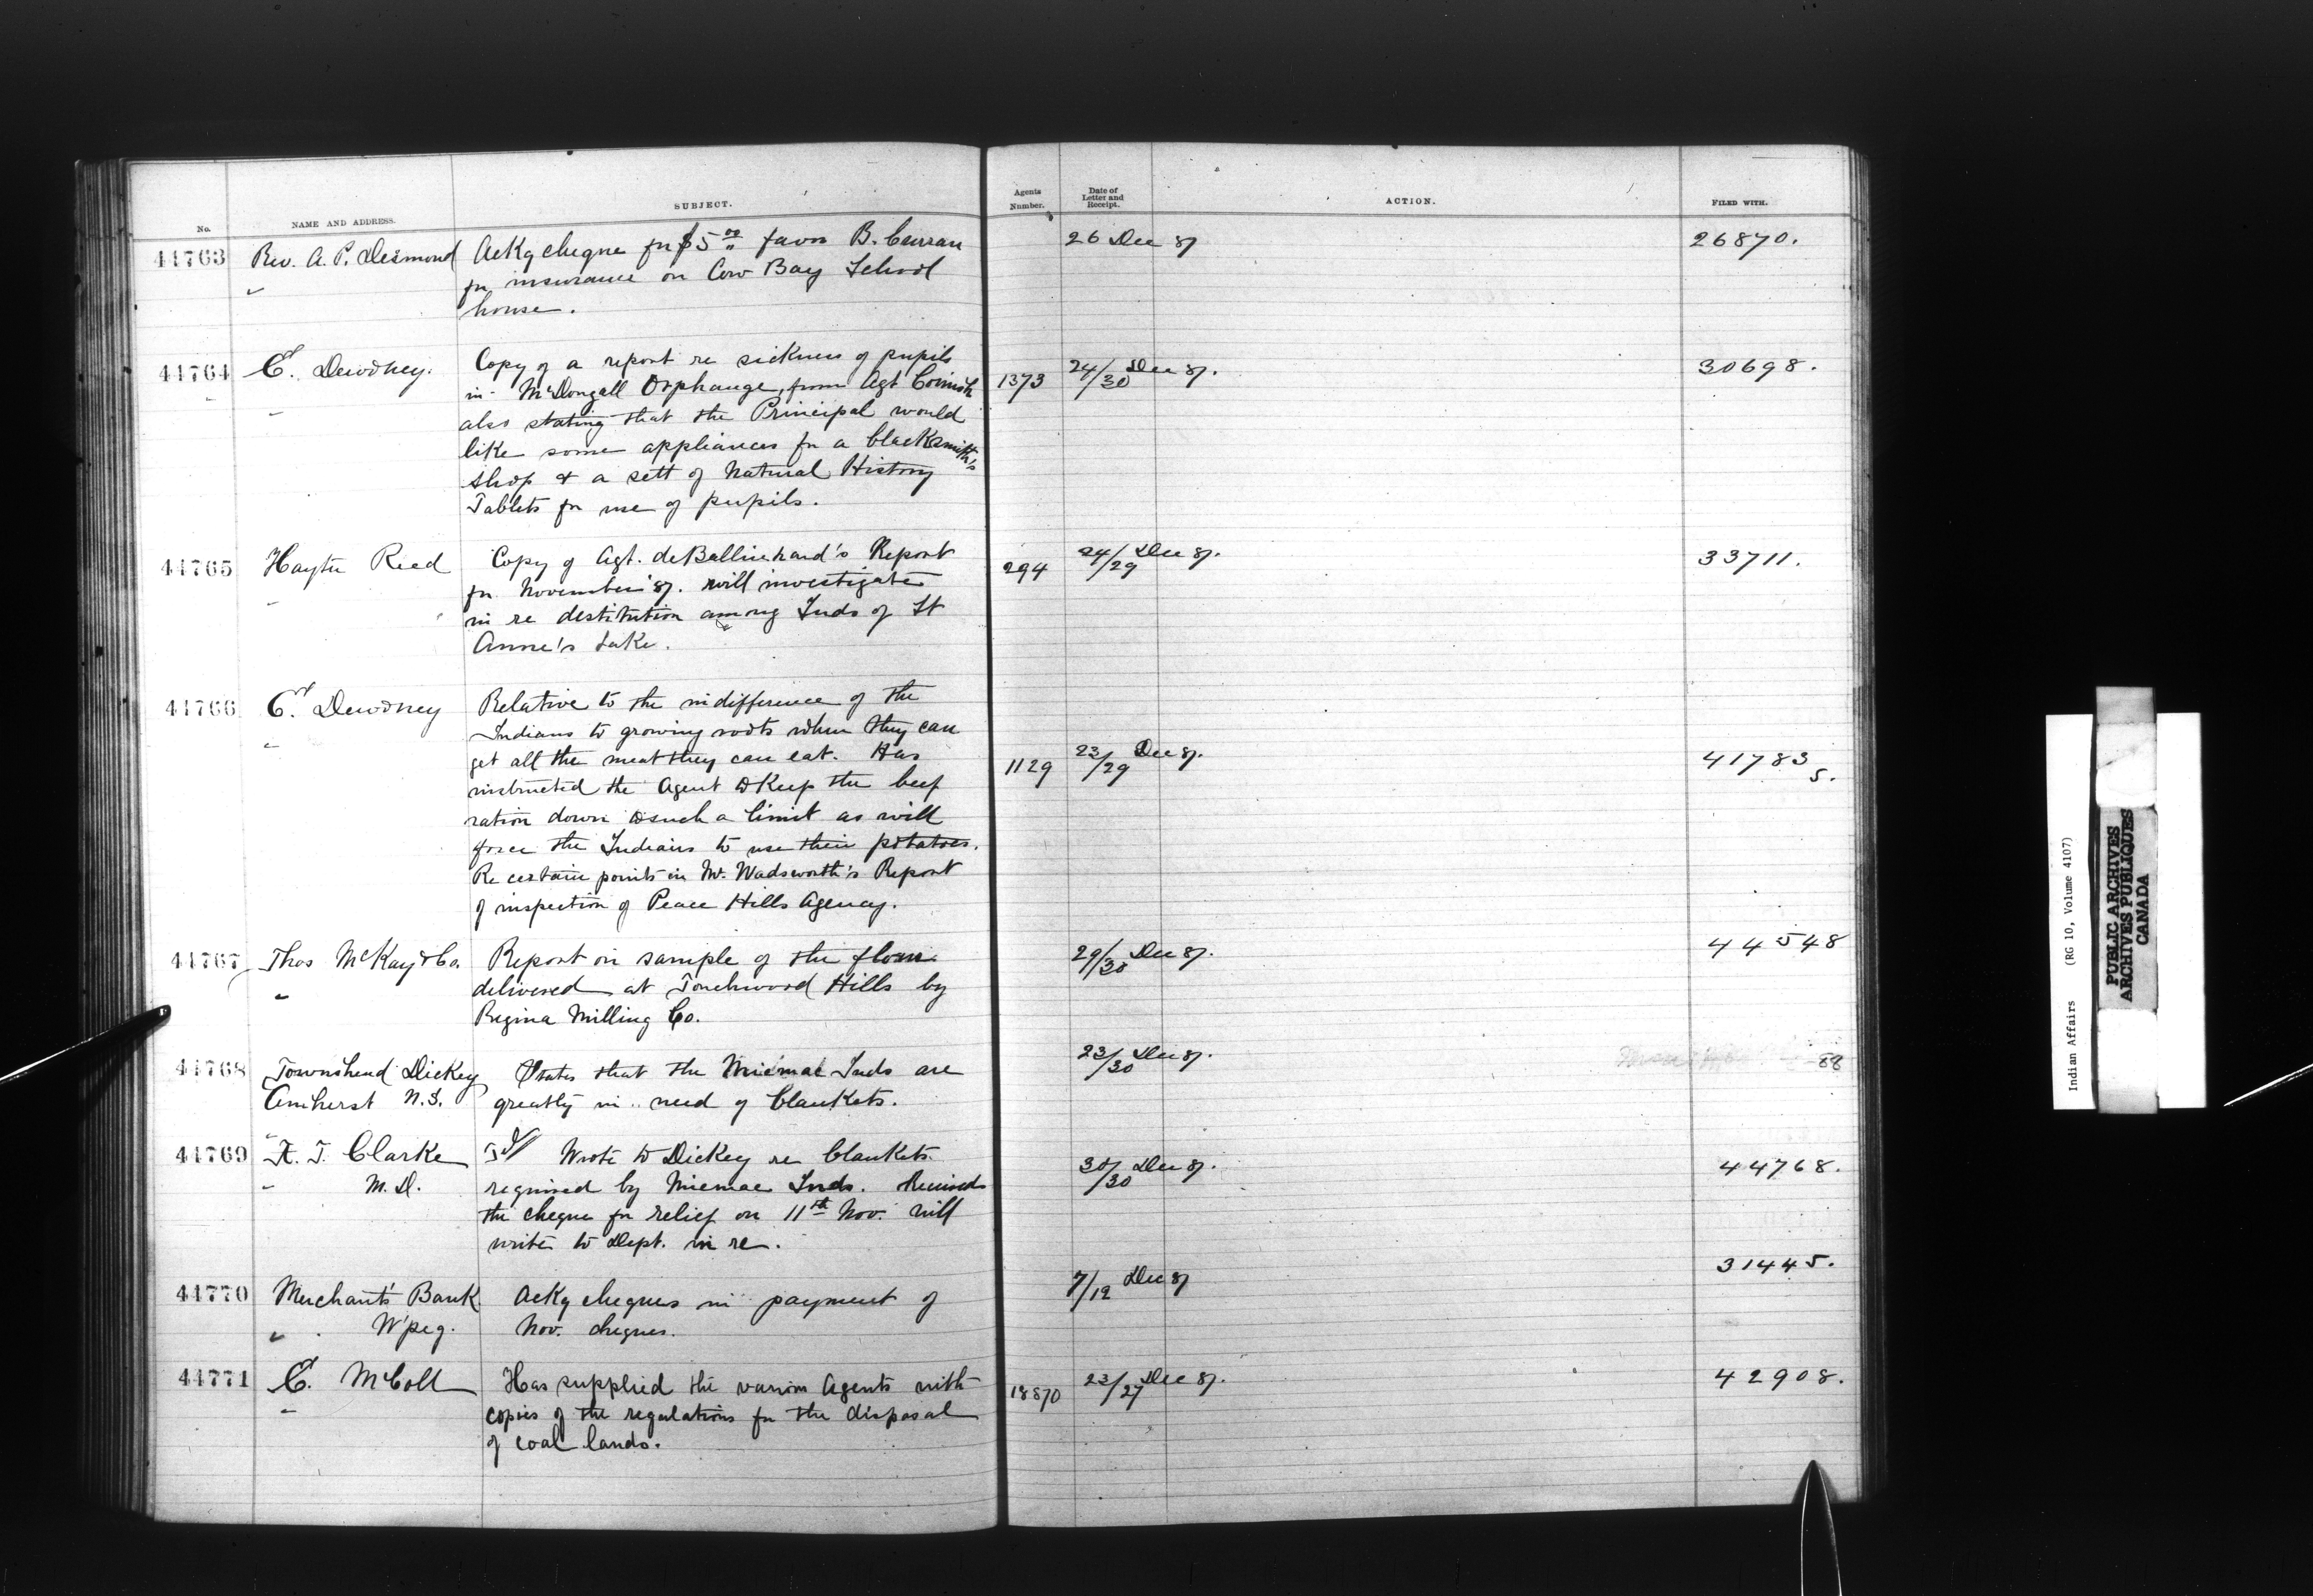 No. NAME AND ADDRESS. SUBJECT. Agents Number. Date of Letter and Receipt. ACTION. FILED WITH.
44763 Rev. A. P. Desmond Ackg cheque for $5.00 favor B. Curran 26 Dec 87 26870.
" for insurance on Cow Bay School
house.
44764 E. Dewdney. Copy of a report re sickness of pupils 24/30 Dec 87. 30698.
" in McDougall Orphanage, from Agt Cornish 1373
also stating that the Principal would
like some appliances for a blacksmith's
shop & a sett of Natural History
Tablets for use of pupils.
44765 Hayter Reed Copy of Agt. deBallinhard's Report 294 24/29 Dec 87. 33711.
" for November '87. will investigate
in re destitution among Inds of St
Anne's Lake.
44766 E. Dewdney Relative to the indifference of the
" Indians to growing roots when they can
get all the meat they can eat. Has 1129 23/29 Dec 87. 41783
instructed the Agent to keep the beef 5.
ration down to such a limit as will
force the Indians to use their potatoes.
Re certain points in Mr. Wadsworth's Report
of inspection of Peace Hills Agency.
44767 Thos McKay & Co. Report on sample of the flour 29/30 Dec 87. 44548
" delivered at Touchwood Hills by
Regina Milling Co.
44768 Townshend Dickey States that the Micmac Inds are 23/30 Dec 87. -88
Amherst N.S. greatly in need of blankets.
44769 A. T. Clarke Tel Wrote to Dickey re blankets 30/30 Dec 87. 44768.
" M.D. required by Micmac Inds. Received
the cheque for relief on 11th Nov. will
write to Dept. in re.
44770 Merchant's Bank Ackg cheques in payment of 7/12 Dec 87 31445.
" W'peg. Nov. cheques.
44771 E. McColl Has supplied the various Agents with 18870 23/27 Dec 87. 42908.
" copies of the regulations for the disposal
of coal lands.
Indian Affairs (RG 10, Volume 4107)
PUBLIC ARCHIVES
ARCHIVES PUBLIQUES
CANADA